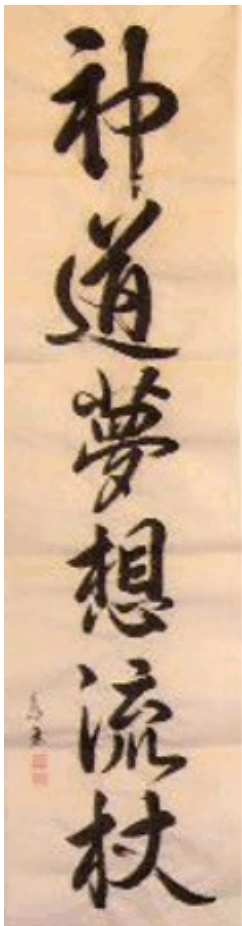 神道夢想流杖